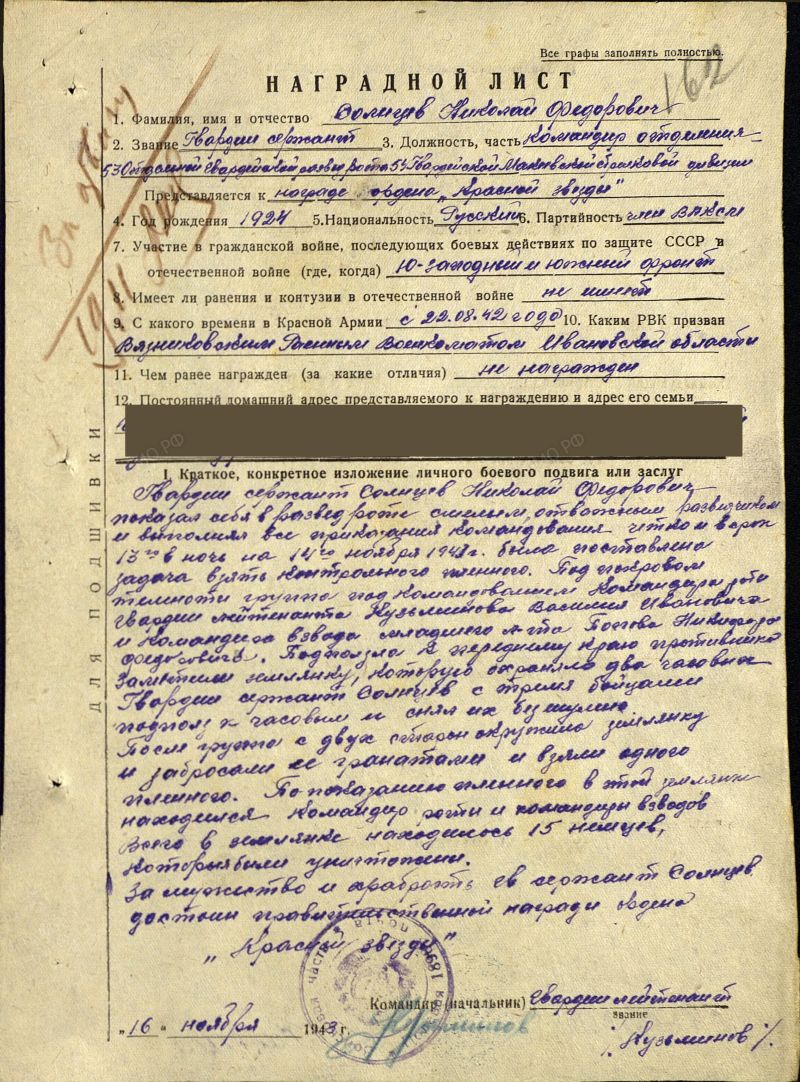 Все графы заполнять полностью.
162
НАГРАДНОЙ ЛИСТ
1. Фамилия, имя и отчество Солнцев Николай Федорович
2. Звание Гвардии сержант 3. Должность, часть Командир отделения
53 Отдельной Гвардейской развед рота 5й Гвардейской стрелковой дивизии
Представляется к награде ордена „Красной звезды"
4. Год рождения 1924 5. Национальность Русский 6. Партийность член ВЛКСМ
7. Участие в гражданской войне, последующих боевых действиях по защите СССР и
отечественной войне (где, когда) Ю-Западный и южный фронт
8. Имеет ли ранения и контузии в отечественной войне не имеет
9. С какого времени в Красной Армии с 22.08.42 года 10. Каким РВК призван
Вязниковским Военкоматом Ивановской области
11. Чем ранее награжден (за какие отличия) не награжден
12. Постоянный домашний адрес представляемого к награждению и адрес его семьи
I. Краткое, конкретное изложение личного боевого подвига или заслуг
Гвардии сержант Солнцев Николай Федорович
показал себя в развед роте смелым, отважным разведчиком
и выполнял все приказания командования четко и в срок
13го в ночь на 14го ноября 1943г. была поставлена
задача взять контрольного пленного. Под покровом
темноти группа под командованием Командира роти
гвардии лейтенанта Кузьминова Василия Ивановича
и Командира взвода младшего л-та Попова Никифора
Федоровича. Подползла к переднему краю противника
Заметили землянку, которую охраняло два часовых
Гвардии сержант Солнцев с тремя бойцами
подполз к часовым и снял их безшумно
После группа с двух сторон окружила землянку
и забросали ее гранатами и взяли одного
пленного. По показанию пленного в этой землянке
находился Командир роти и командиры взводов
Всего в землянке находилось 15 немцев,
которыя были уничтожени.
За мужество и храбрость гв сержант Солнцев
достоин правительственной награди ордена
„Красной звезды"
Командир (начальник) Гвардии лейтенант
звание
„16" ноября 1943 г.
Кузьминов
ДЛЯ ПОДШИВКИ